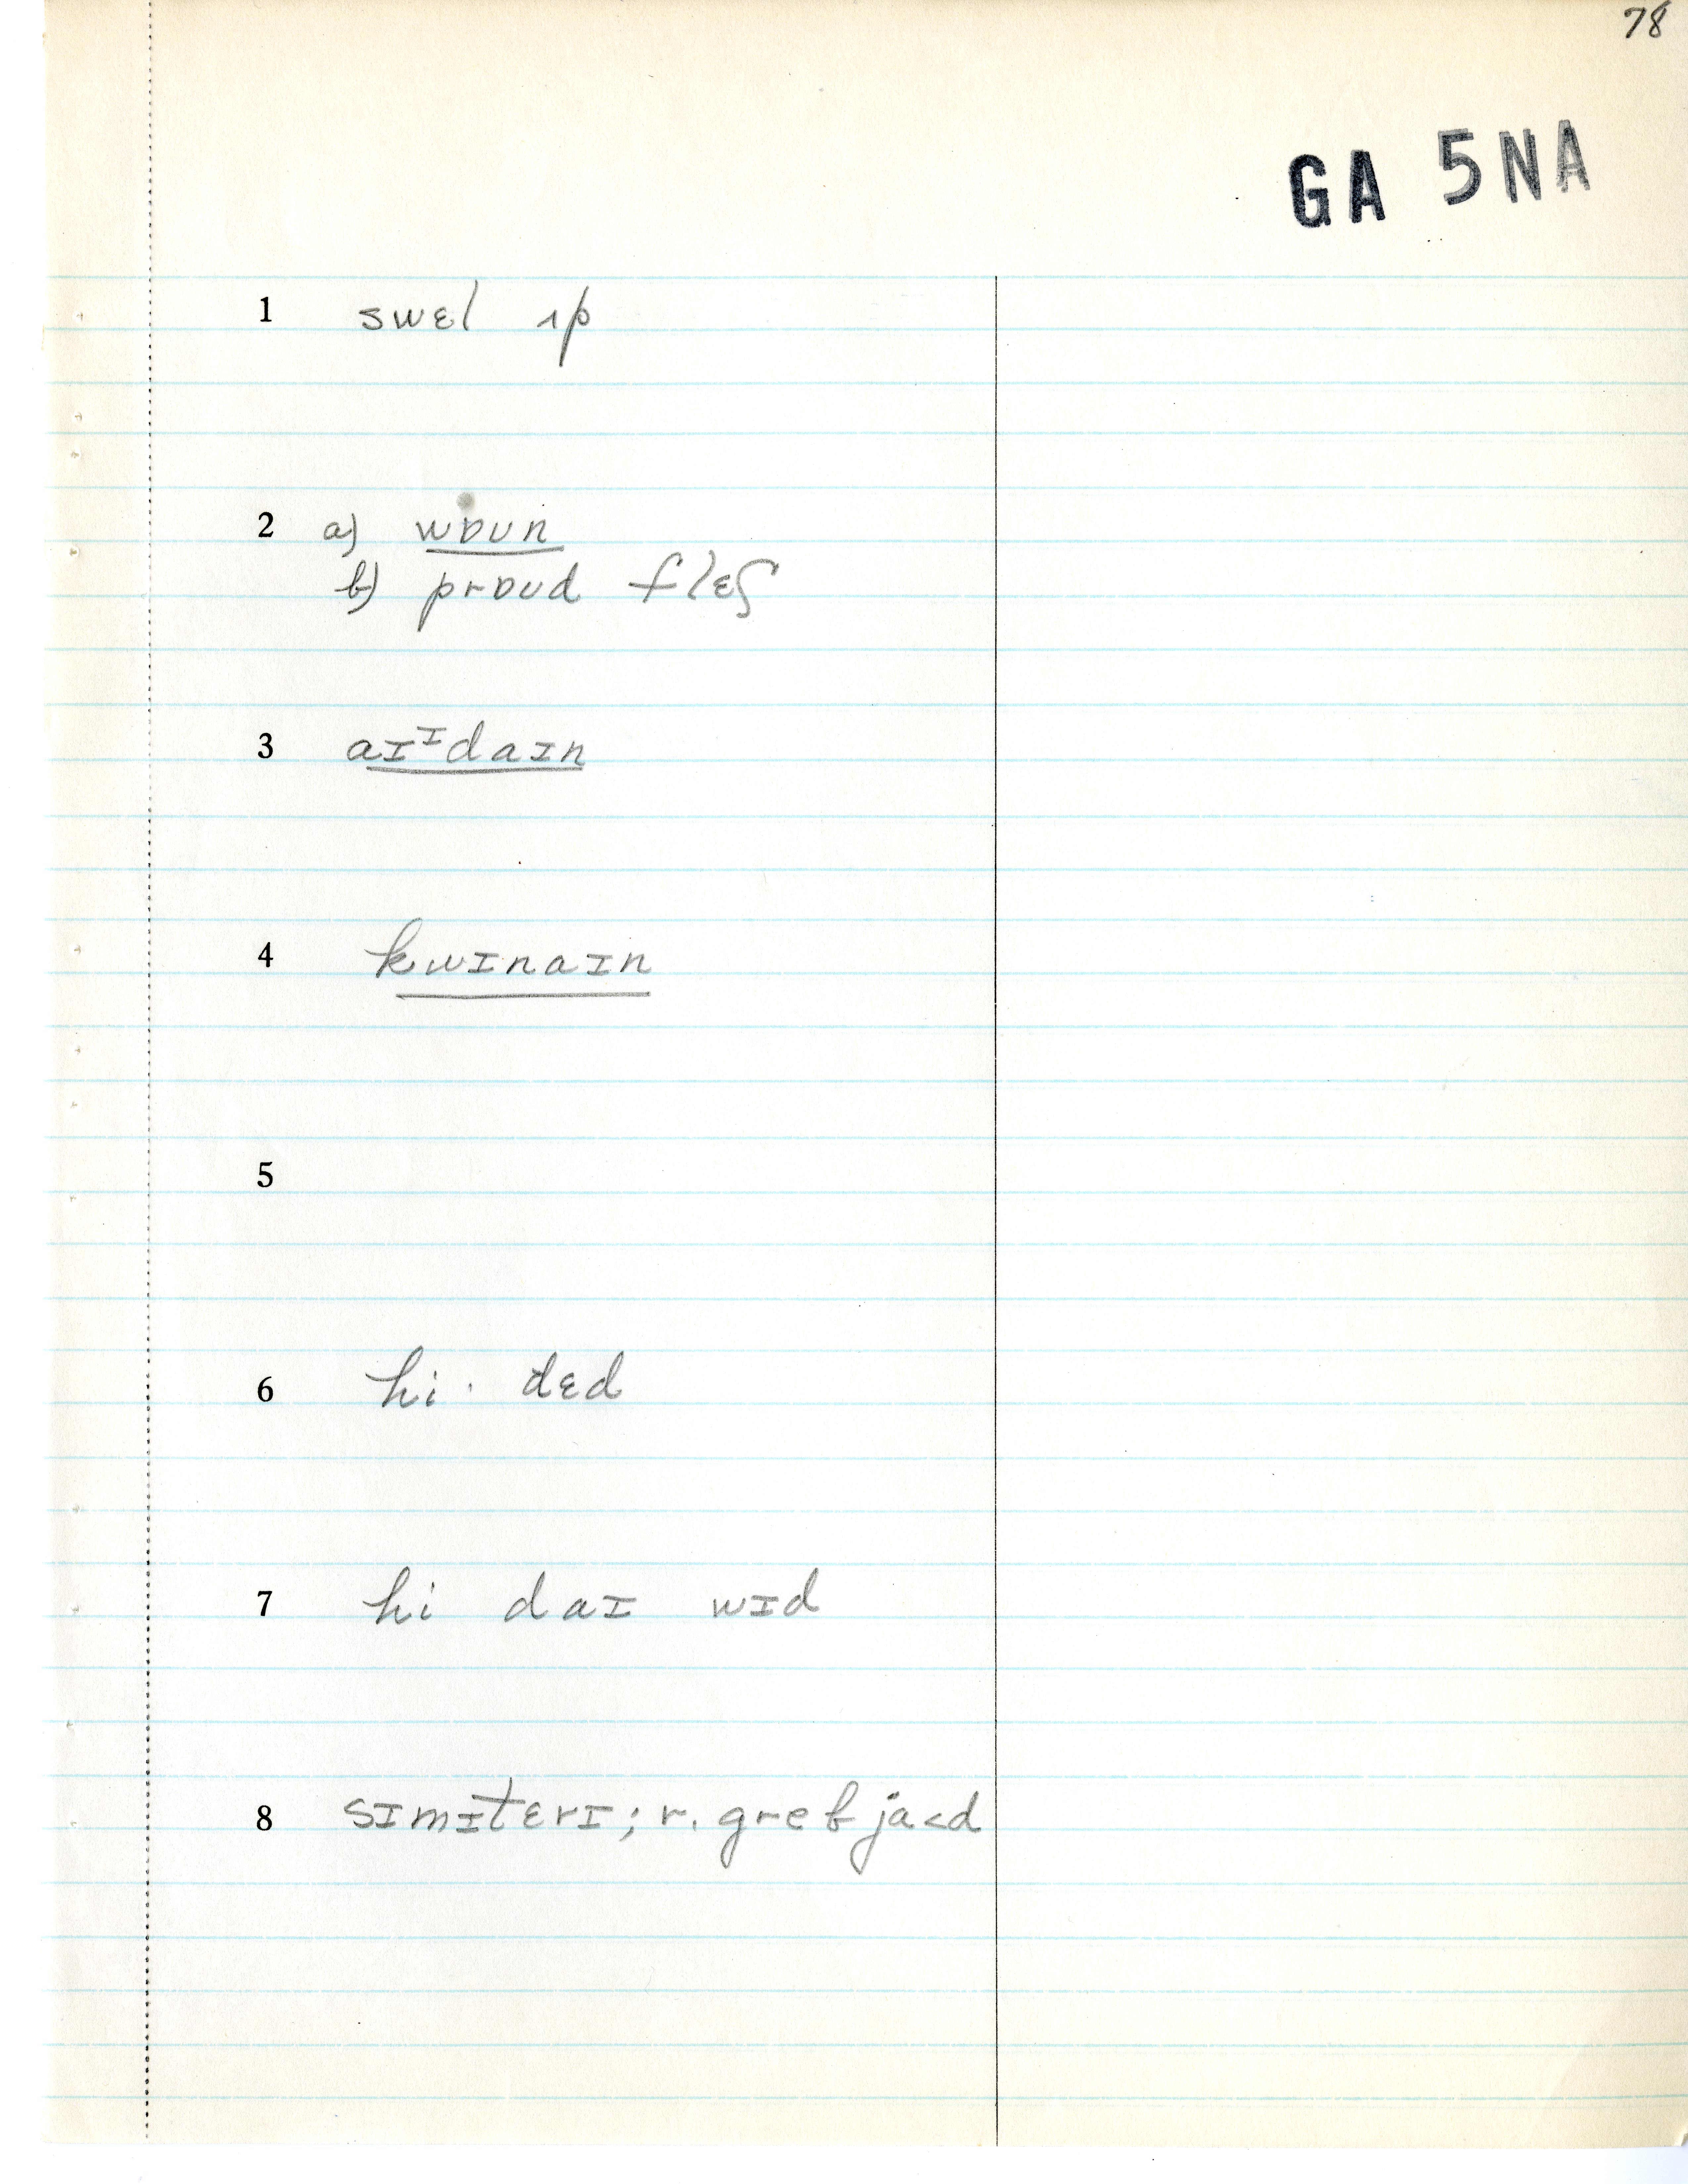 78
GA 5NA
1 swɛl ɿp
2 a) wɒun
b) prɒud flɛʃ
3 aɪᶦdaɪn
4 kwɪnaɪn
5
6 hi· dɛd
7 hi daɪ wɪd
8 sɪmɪtɛrɪ; r. grefja<d